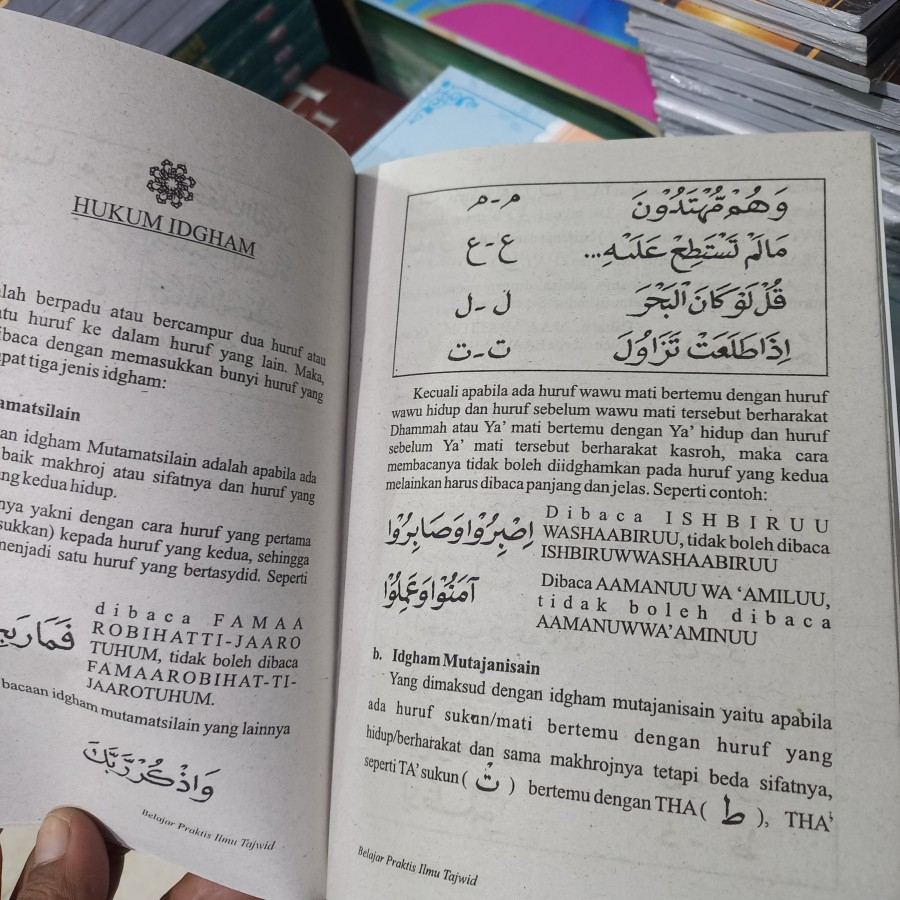 HUKUM IDGHAM
berpadu atau bercampur dua huruf atau
huruf ke dalam huruf yang lain. Maka,
dibaca dengan memasukkan bunyi huruf yang
tiga jenis idgham:
idgham Mutamatsilain adalah apabila ada
baik makhroj atau sifatnya dan huruf yang
kedua hidup.
yakni dengan cara huruf yang pertama
kepada huruf yang kedua, sehingga
menjadi satu huruf yang bertasydid. Seperti
dibaca FAMAA
ROBIHATTI-JAARO
TUHUM, tidak boleh dibaca
FAMAAROBIHAT-TI-
JAAROTUHUM.
bacaan idgham mutamatsilain yang lainnya
وَاذْكُرْ رَّبَّكَ
Belajar Praktis Ilmu Tajwid
وَهُمْ مُّهْتَدُوْنَ م - م
مَالَمْ تَسْتَطِعْ عَلَيْهِ... ع - ع
قُلْ لَوْ كَانَ الْبَحْرَ ل - ل
اِذَا طَلَعَتْ تَزَاوَرُ ت - ت
Kecuali apabila ada huruf wawu mati bertemu dengan huruf
wawu hidup dan huruf sebelum wawu mati tersebut berharakat
Dhammah atau Ya' mati bertemu dengan Ya' hidup dan huruf
sebelum Ya' mati tersebut berharakat kasroh, maka cara
membacanya tidak boleh diidghamkan pada huruf yang kedua
melainkan harus dibaca panjang dan jelas. Seperti contoh:
اِصْبِرُوْا وَصَابِرُوْا
Dibaca ISHBIRUU
WASHAABIRUU, tidak boleh dibaca
ISHBIRUWWASHAABIRUU
آمَنُوْا وَعَمِلُوْا
Dibaca AAMANUU WA 'AMILUU,
tidak boleh dibaca
AAMANUWWA'AMINUU
b. Idgham Mutajanisain
Yang dimaksud dengan idgham mutajanisain yaitu apabila
ada huruf sukun/mati bertemu dengan huruf yang
hidup/berharakat dan sama makhrojnya tetapi beda sifatnya,
seperti TA' sukun ( تْ ) bertemu dengan THA ( ط ), THA'
Belajar Praktis Ilmu Tajwid